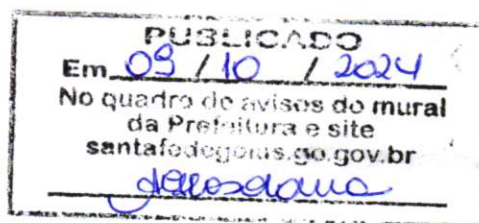 PUBLICADO
Em 09 / 10 / 2024
No quadro de avisos do mural
da Prefeitura e site
santafedegoias.go.gov.br